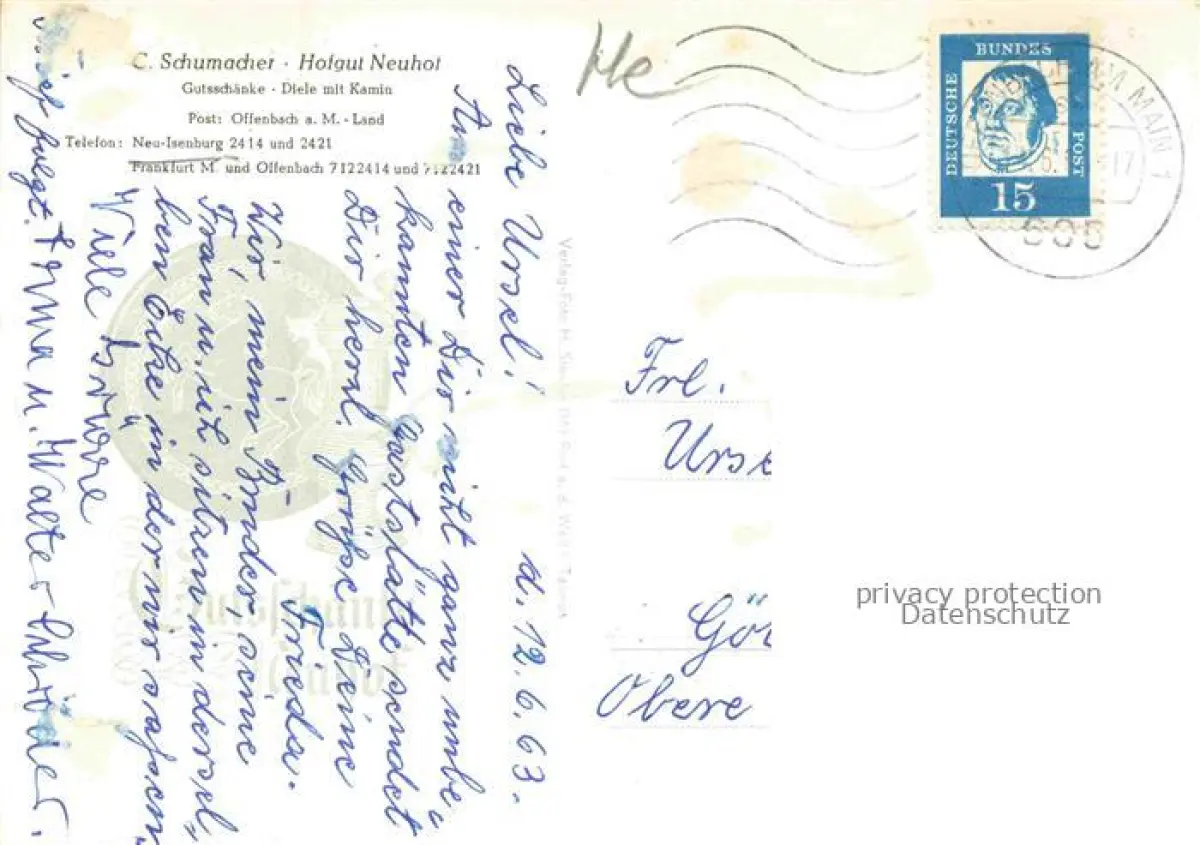 C. Schumacher · Hofgut Neuhof
Gutsschänke · Diele mit Kamin
Post: Offenbach a. M. - Land
Telefon: Neu-Isenburg 2414 und 2421
Frankfurt M. und Offenbach 7122414 und 7122421
d. 12.6.63.
Liebe Ursel!
Aus einer Dir nicht ganz unbe„
kannten Gaststätte sendet
Dir herzl. Grüße Deine
Frieda.
Wir, mein Bruder, seine
Frau u. ich sitzen in dersel„
ben Ecke in der wir sassen
Viele Grüße
folgt. Erna u. Walter Schröder.
Me
DEUTSCHE
BUNDES
POST
15
AM MAIN 1
17
605
Frl.
Urse
Gö
Obere
privacy protection
Datenschutz
Verlag-Foto H.
Gutsschänke
Neuhof